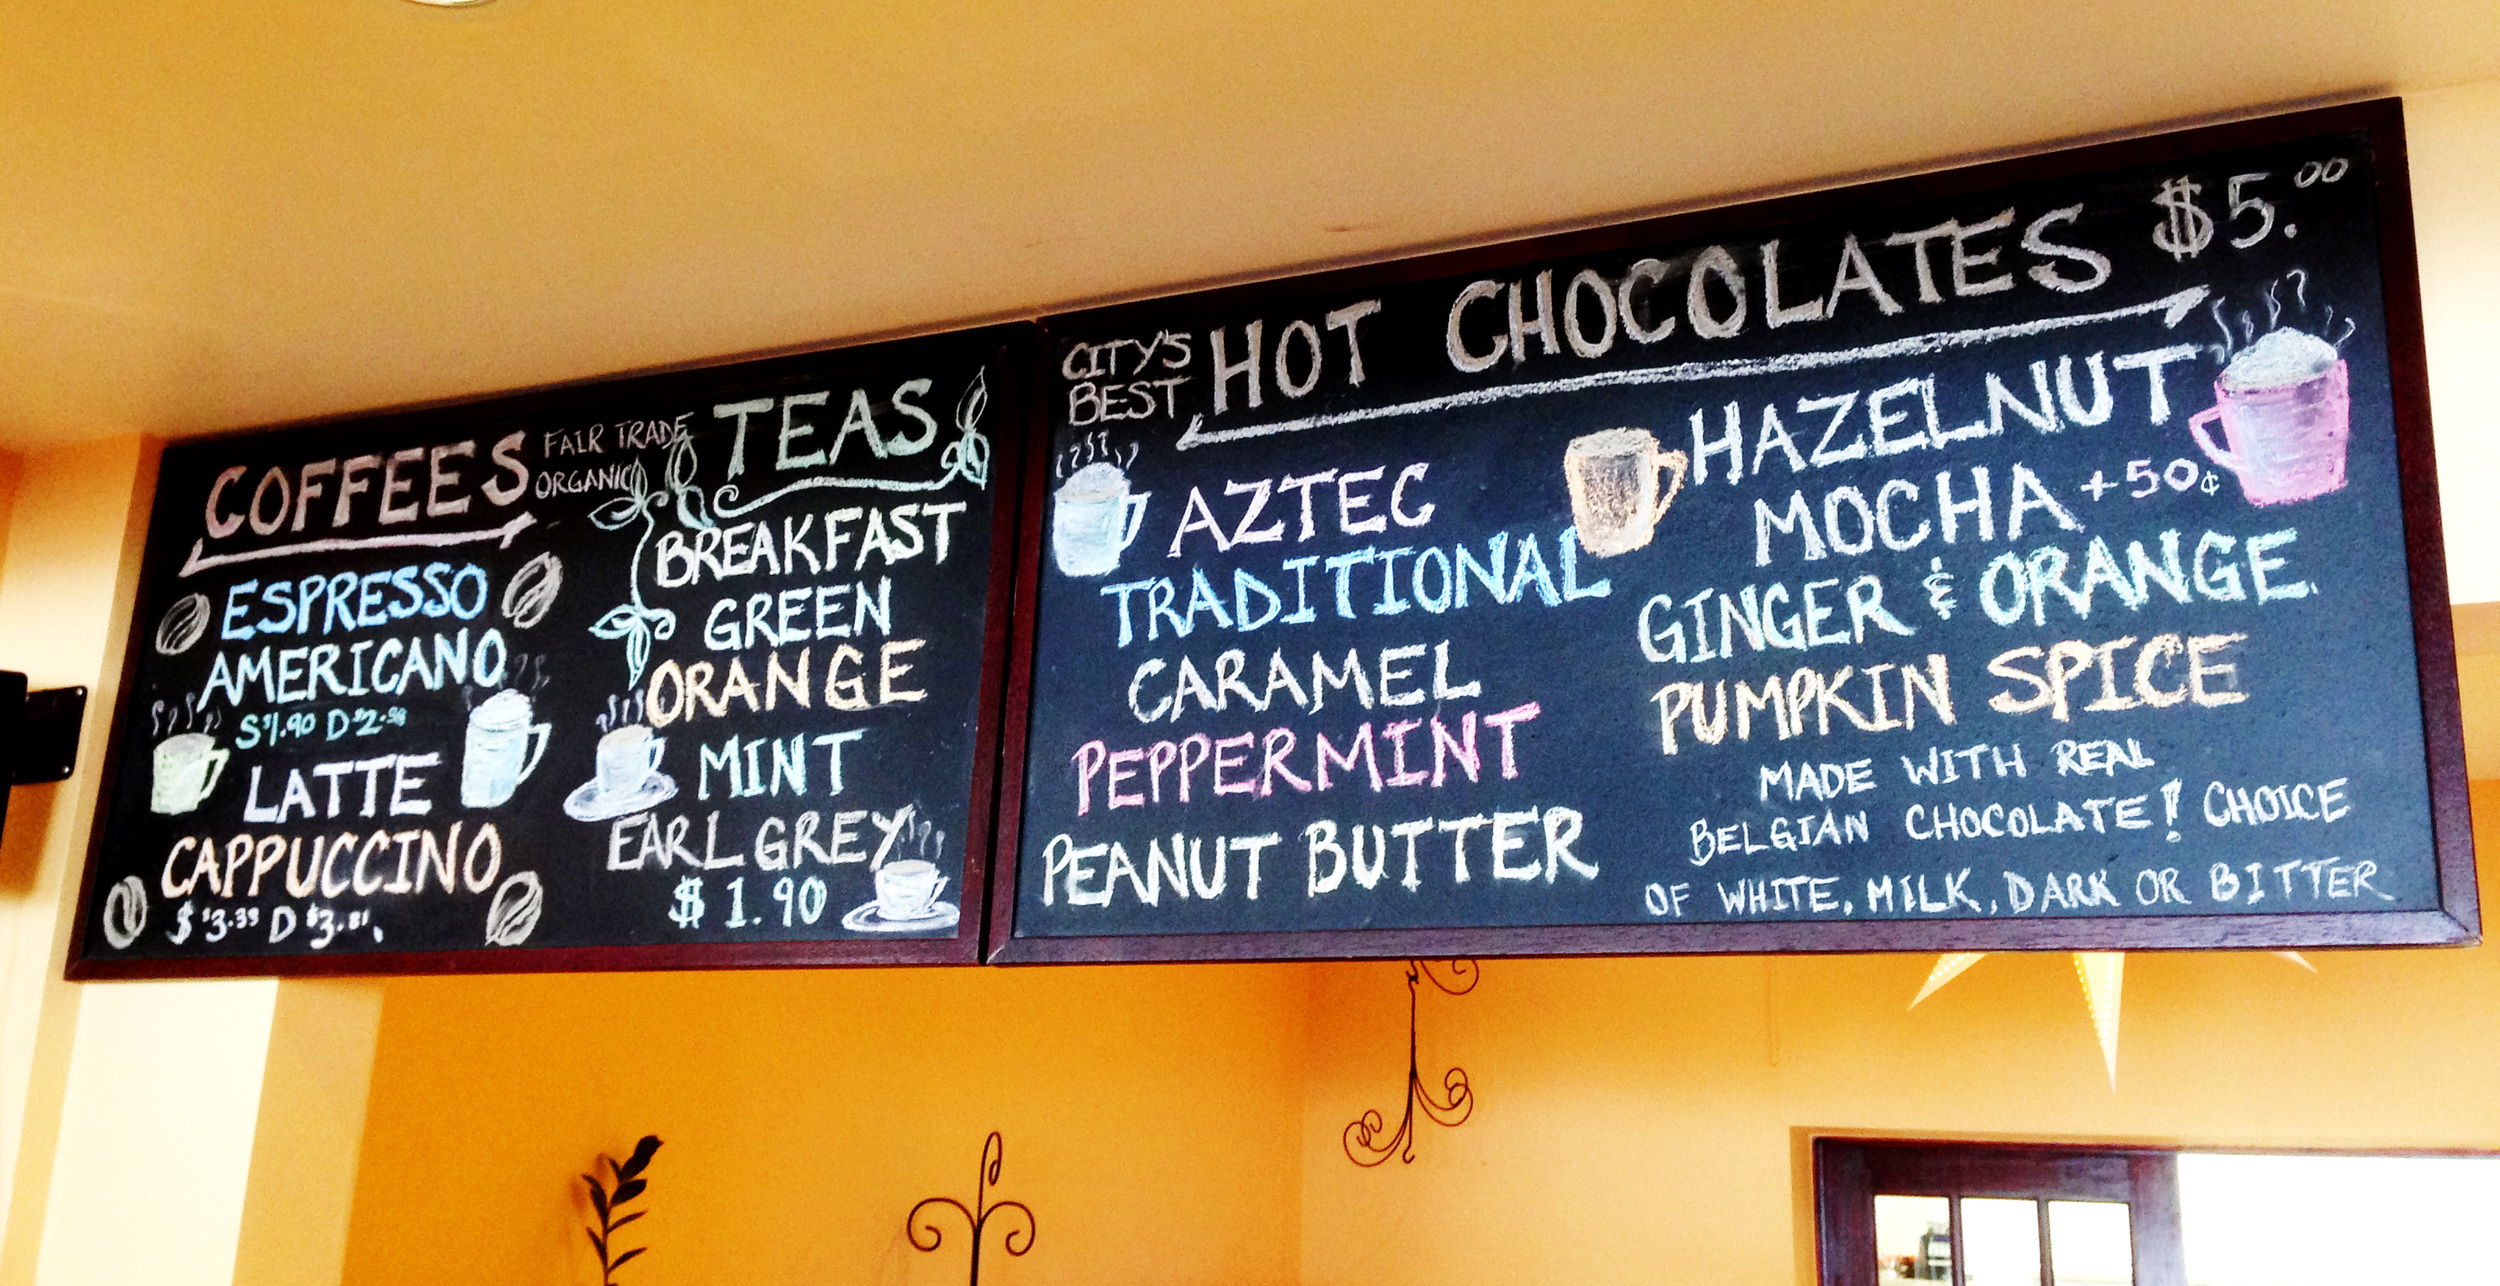 COFFEES
FAIR TRADE
ORGANIC
ESPRESSO
AMERICANO
S $1.90 D $2.38
LATTE
CAPPUCCINO
S $3.33 D $3.81
TEAS
BREAKFAST
GREEN
ORANGE
MINT
EARL GREY
$1.90
CITY'S
BEST
HOT CHOCOLATES $5.00
AZTEC
TRADITIONAL
CARAMEL
PEPPERMINT
PEANUT BUTTER
HAZELNUT
MOCHA +50¢
GINGER & ORANGE
PUMPKIN SPICE
MADE WITH REAL
BELGIAN CHOCOLATE! CHOICE
OF WHITE, MILK, DARK OR BITTER